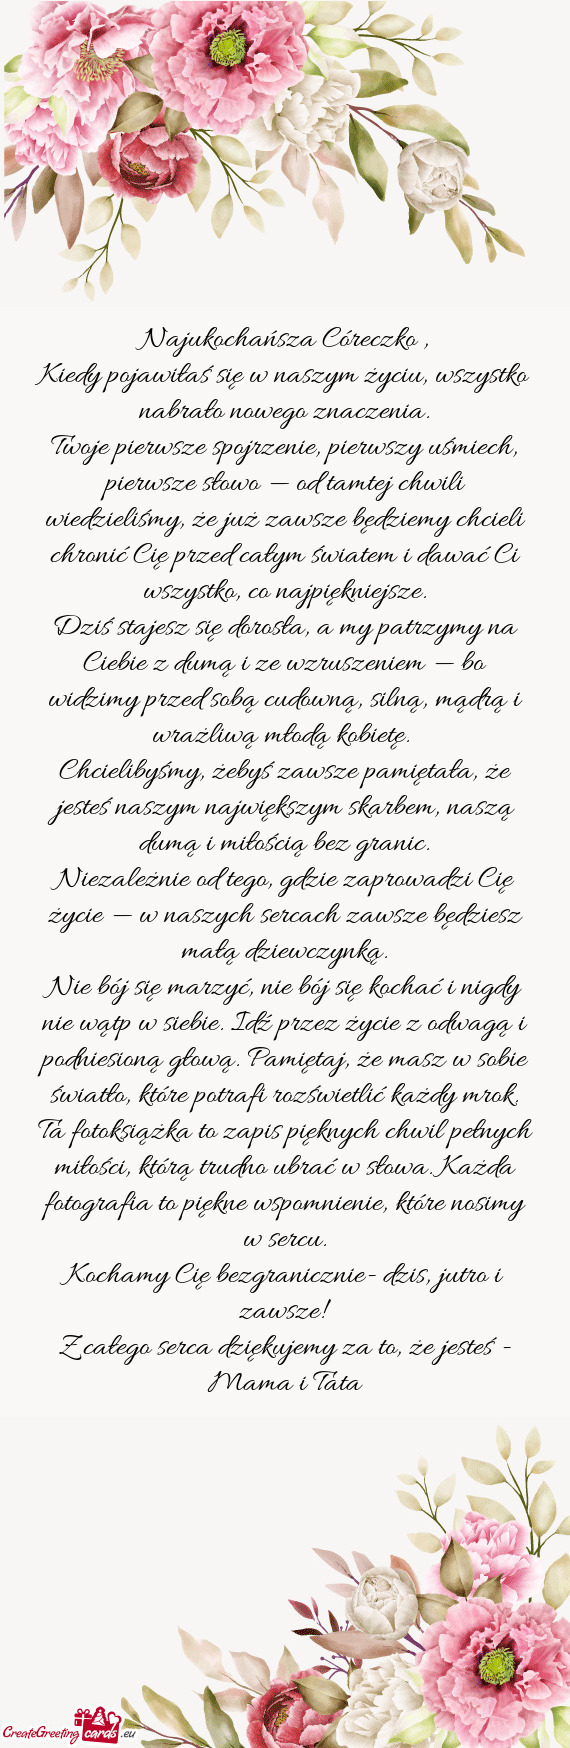 Najukochańsza Córeczko ,
Kiedy pojawiłaś się w naszym życiu, wszystko
nabrało nowego znaczenia.
Twoje pierwsze spojrzenie, pierwszy uśmiech,
pierwsze słowo — od tamtej chwili
wiedzieliśmy, że już zawsze będziemy chcieli
chronić Cię przed całym światem i dawać Ci
wszystko, co najpiękniejsze.
Dziś stajesz się dorosła, a my patrzymy na
Ciebie z dumą i ze wzruszeniem — bo
widzimy przed sobą cudowną, silną, mądrą i
wrażliwą młodą kobietę.
Chcielibyśmy, żebyś zawsze pamiętała, że
jesteś naszym największym skarbem, naszą
dumą i miłością bez granic.
Niezależnie od tego, gdzie zaprowadzi Cię
życie — w naszych sercach zawsze będziesz
małą dziewczynką.
Nie bój się marzyć, nie bój się kochać i nigdy
nie wątp w siebie. Idź przez życie z odwagą i
podniesioną głową. Pamiętaj, że masz w sobie
światło, które potrafi rozświetlić każdy mrok.
Ta fotoksiążka to zapis pięknych chwil pełnych
miłości, którą trudno ubrać w słowa. Każda
fotografia to piękne wspomnienie, które nosimy
w sercu.
Kochamy Cię bezgranicznie- dzis, jutro i
zawsze!
Z całego serca dziękujemy za to, że jesteś -
Mama i Tata
CreateGreeting cards .eu